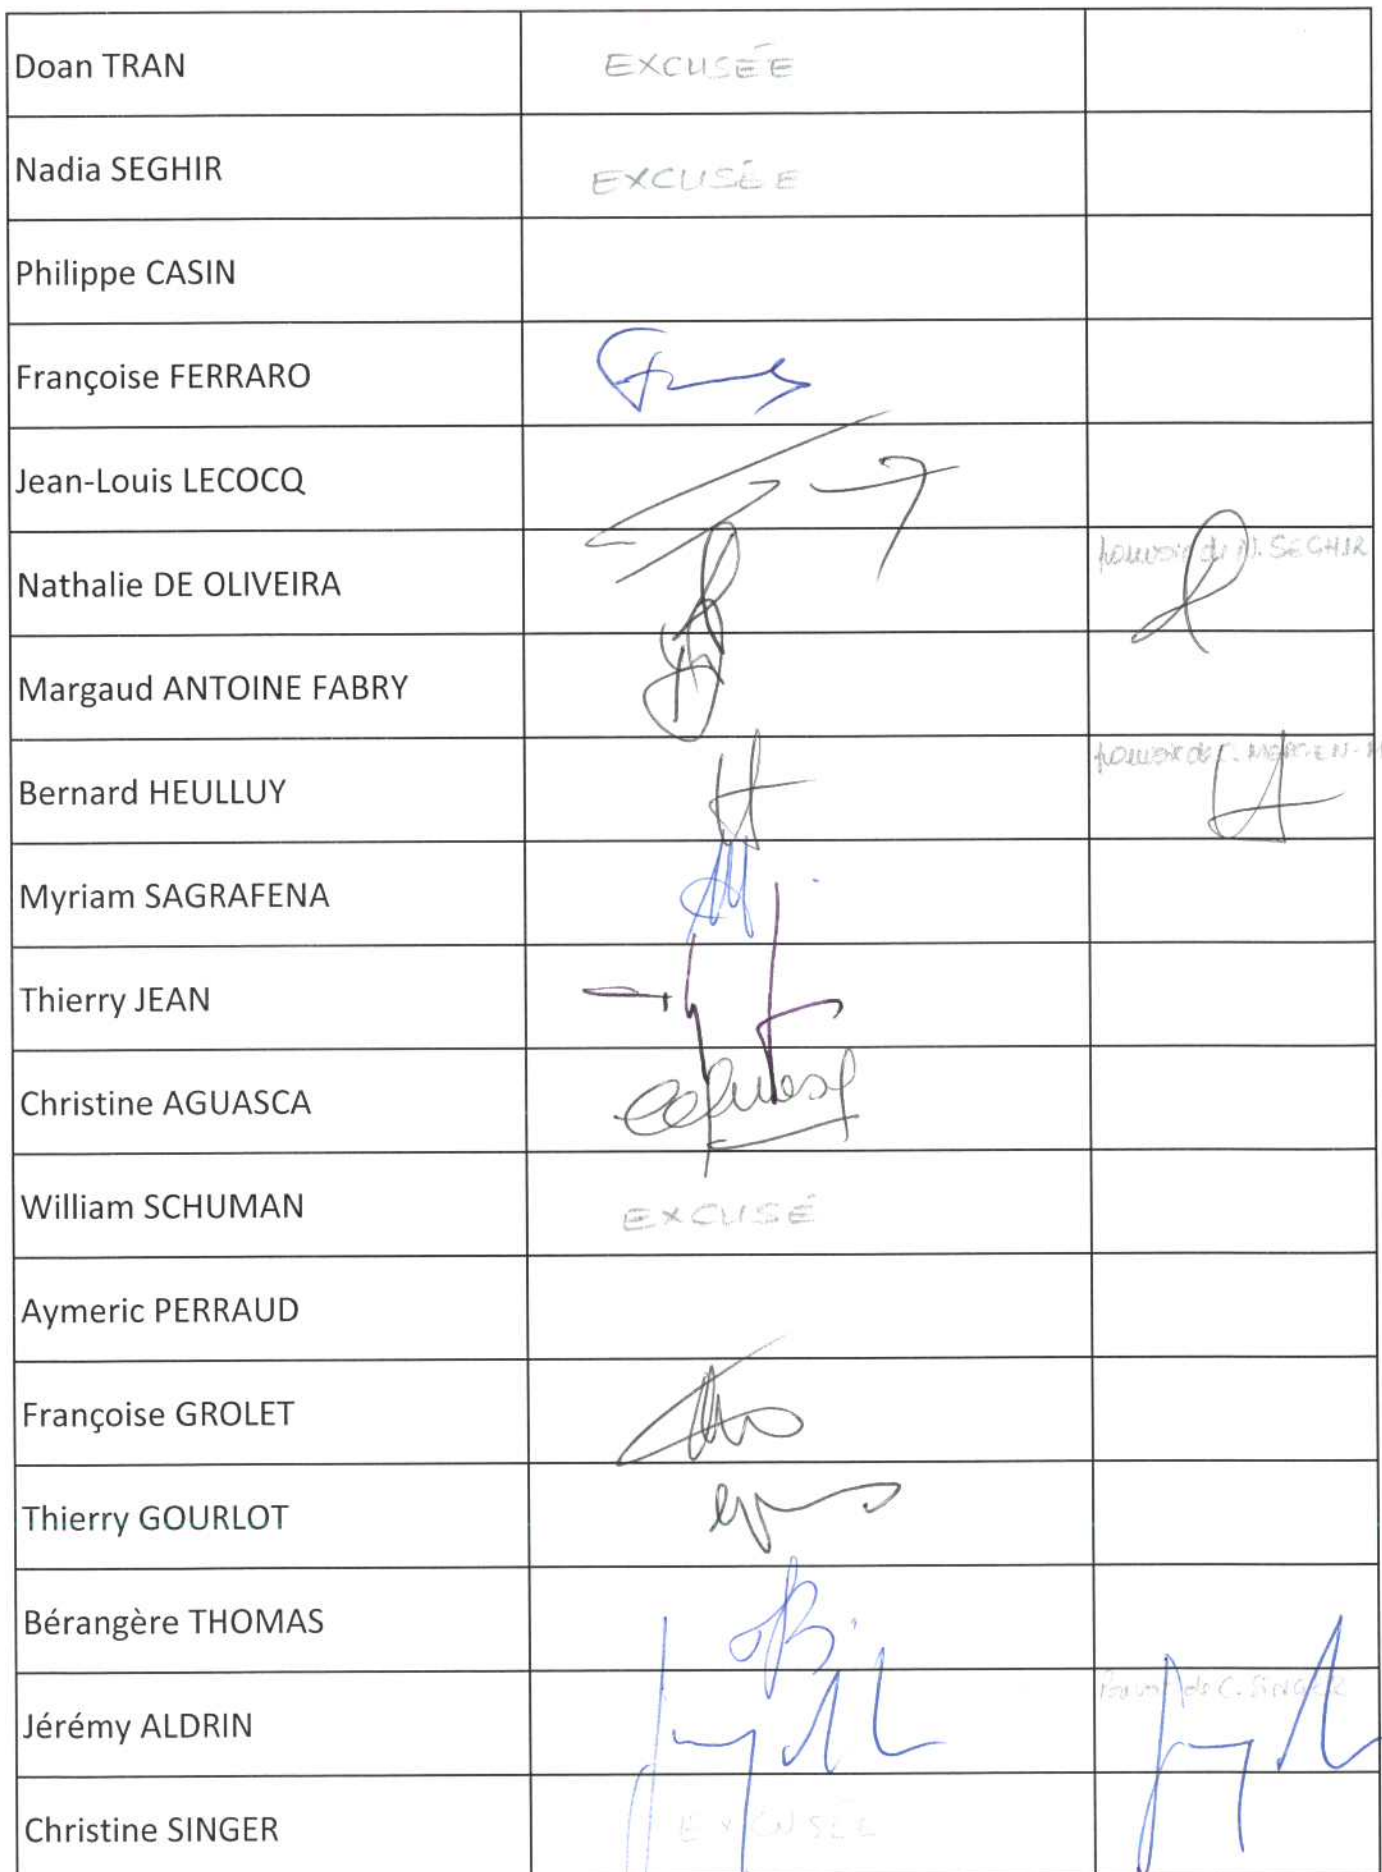 Doan TRAN EXCUSÉE
Nadia SEGHIR EXCUSÉE
Philippe CASIN
Françoise FERRARO
Jean-Louis LECOCQ
Nathalie DE OLIVEIRA pouvoir de N. SEGHIR
Margaud ANTOINE FABRY
Bernard HEULLUY pouvoir de C.
Myriam SAGRAFENA
Thierry JEAN
Christine AGUASCA
William SCHUMAN EXCUSÉ
Aymeric PERRAUD
Françoise GROLET
Thierry GOURLOT
Bérangère THOMAS
Jérémy ALDRIN Pouvoir de C. SINGER
Christine SINGER EXCUSÉE